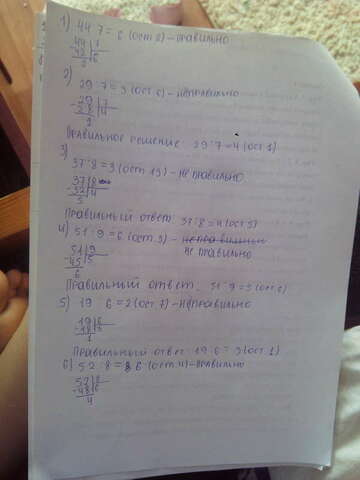 1) 44 : 7 = 6 (ост 2) - правильно
44 | 7
- 42 | 6
2
2)
29 : 7 = 3 (ост 6) - неправильно
- 29 | 7
28 | 4
Правильное решение: 29 : 7 = 4 (ост 1)
3)
37 : 8 = 3 (ост 13) - не правильно.
37 | 8
- 32 | 4
5
Правильный ответ 37 : 8 = 4 (ост 5)
4) 51 : 9 = 6 (ост 3) - неправильно
не правильно
51 | 9
- 45 | 5
6
Правильный ответ - 51 : 9 = 5 (ост 6)
5) 19 : 6 = 2 (ост 7) - неправильно
19 | 6
- 18 | 3
1
Правильный ответ 19 : 6 = 3 (ост 1)
6) 52 : 8 = 6 (ост 4) - правильно
52 | 8
- 48 | 6
4